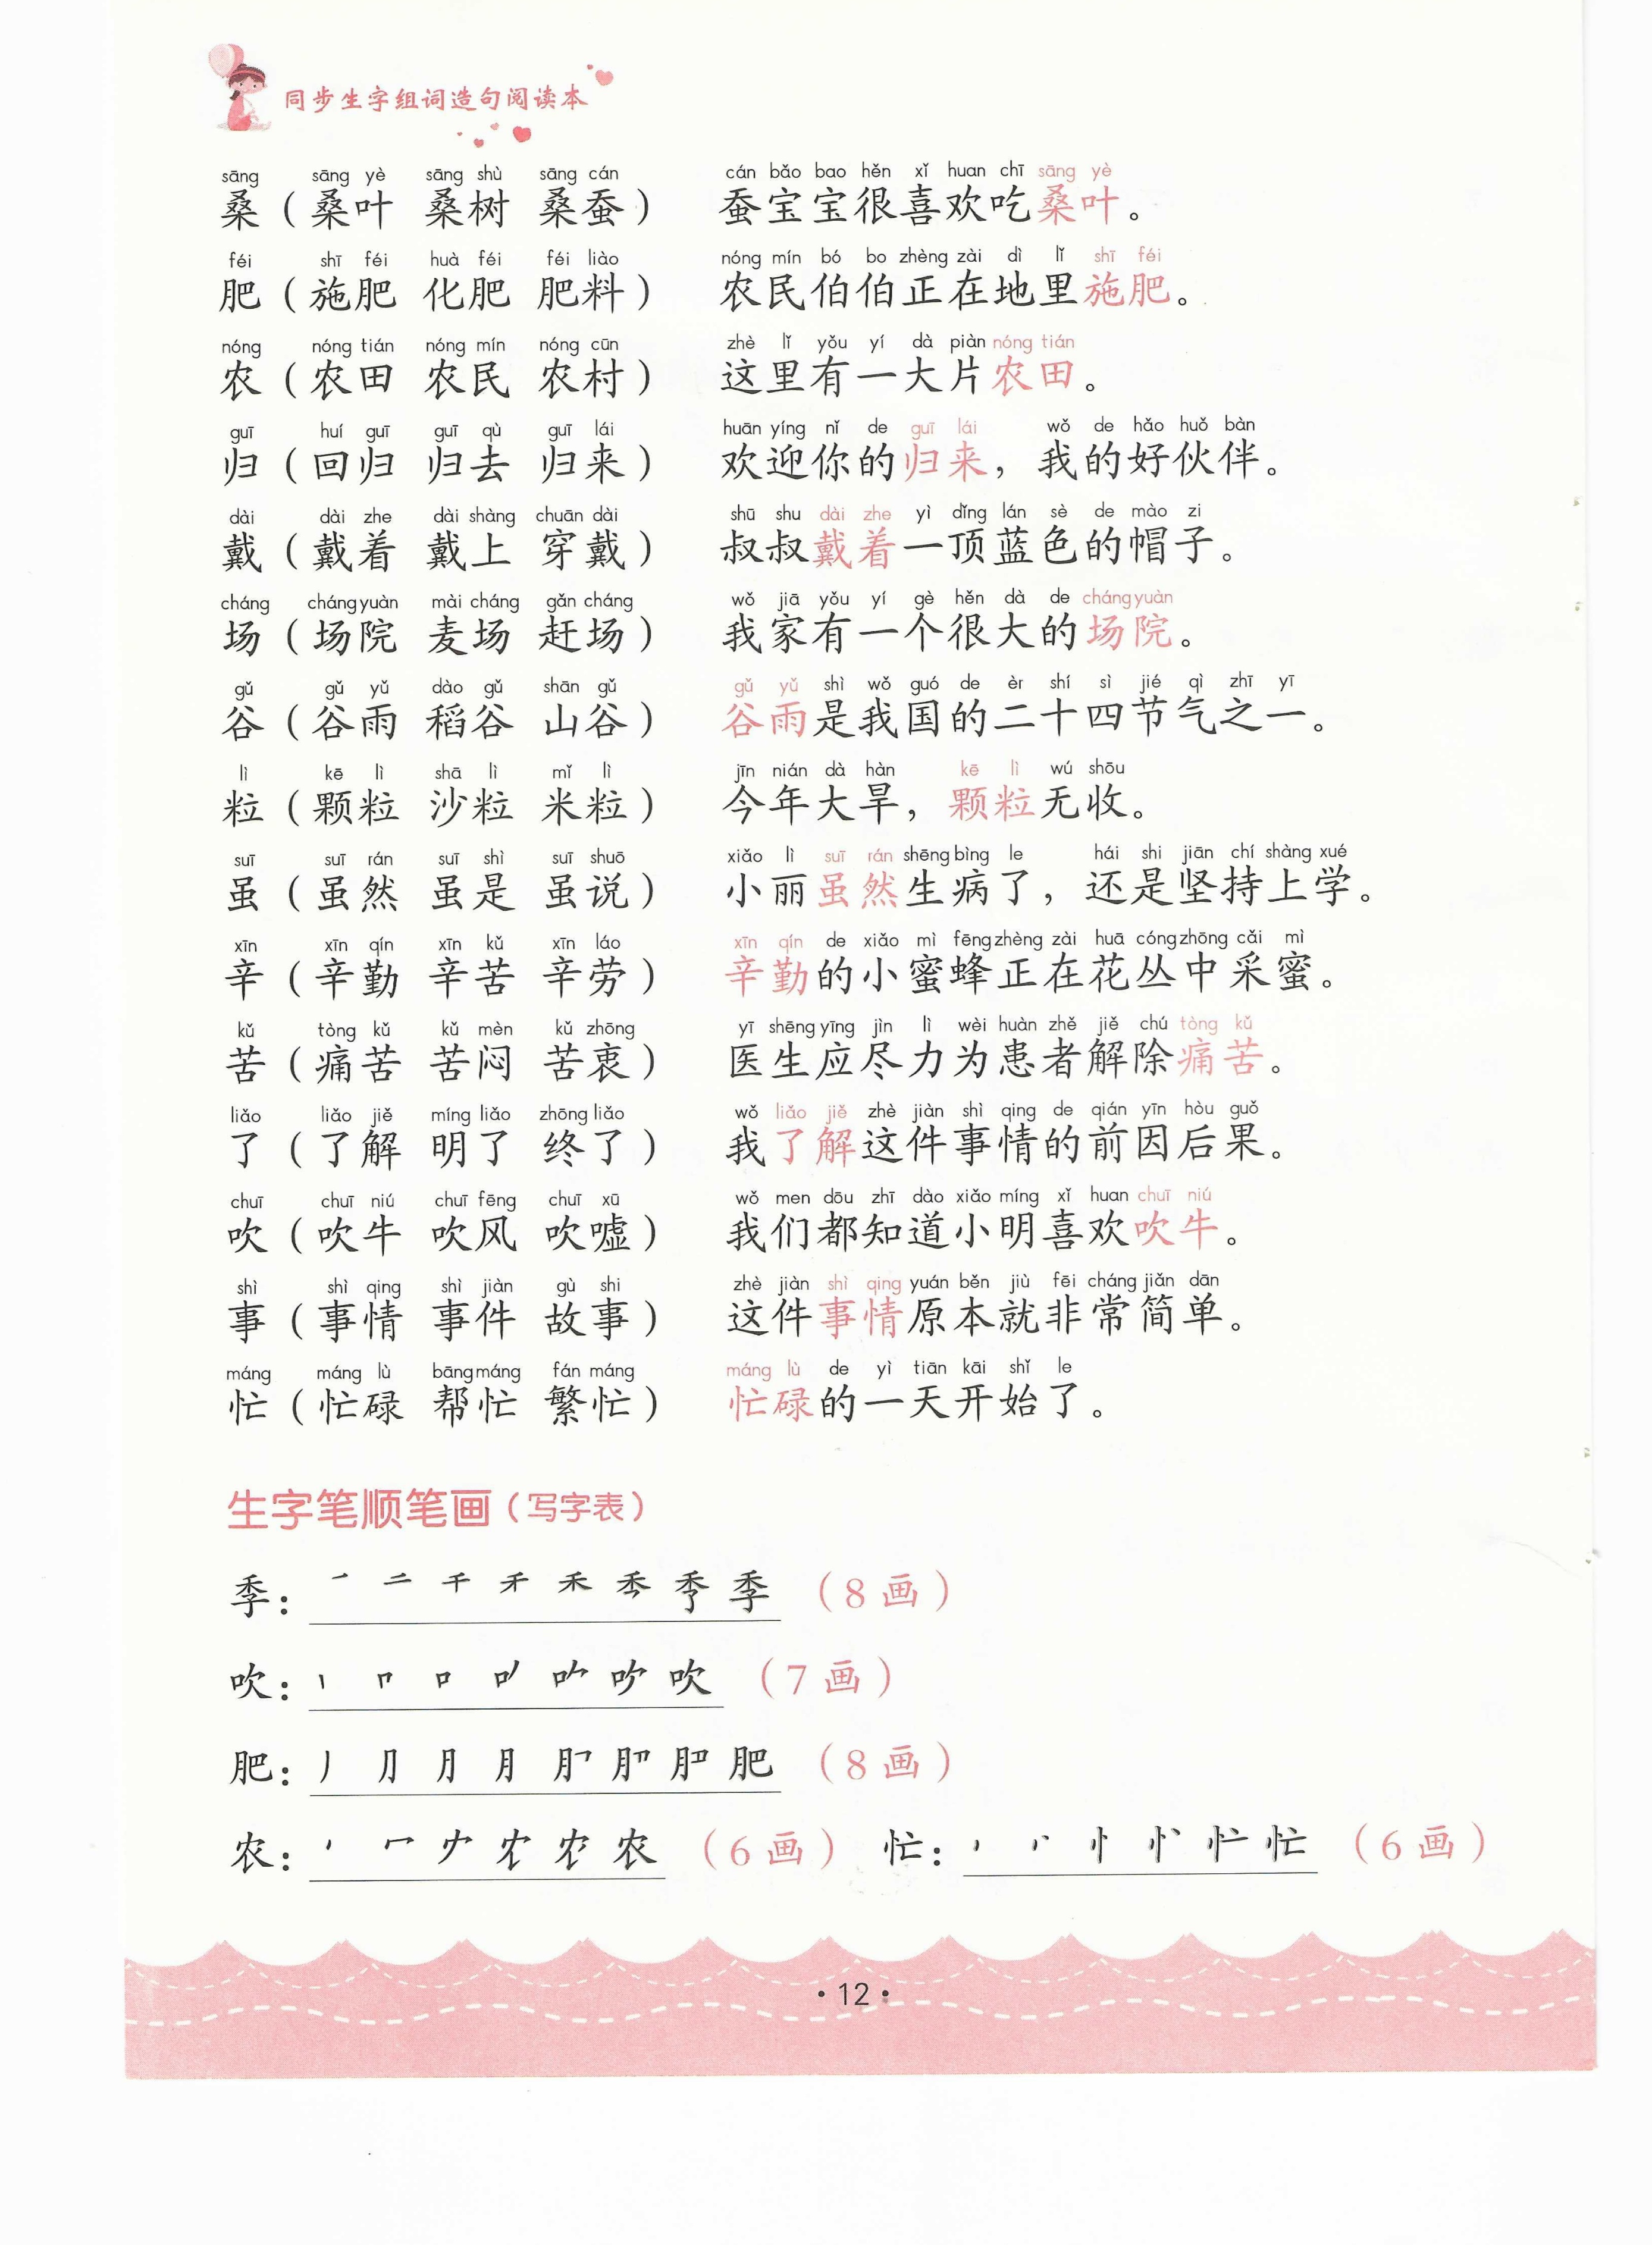 同步生字组词造句阅读本
sāng sāng yè sāng shù sāng cán cán bǎo bao hěn xǐ huan chī sāng yè
桑（桑叶 桑树 桑蚕） 蚕宝宝很喜欢吃桑叶。
féi shī féi huà féi féi liào nóng mín bó bo zhèng zài dì lǐ shī féi
肥（施肥 化肥 肥料） 农民伯伯正在地里施肥。
nóng nóng tián nóng mín nóng cūn zhè lǐ yǒu yí dà piàn nóng tián
农（农田 农民 农村） 这里有一大片农田。
guī huí guī guī qù guī lái huān yíng nǐ de guī lái wǒ de hǎo huǒ bàn
归（回归 归去 归来） 欢迎你的归来，我的好伙伴。
dài dài zhe dài shàng chuān dài shū shu dài zhe yì dǐng lán sè de mào zi
戴（戴着 戴上 穿戴） 叔叔戴着一顶蓝色的帽子。
cháng cháng yuàn mài cháng gǎn cháng wǒ jiā yǒu yí gè hěn dà de cháng yuàn
场（场院 麦场 赶场） 我家有一个很大的场院。
gǔ gǔ yǔ dào gǔ shān gǔ gǔ yǔ shì wǒ guó de èr shí sì jié qì zhī yī
谷（谷雨 稻谷 山谷） 谷雨是我国的二十四节气之一。
lì kē lì shā lì mǐ lì jīn nián dà hàn kē lì wú shōu
粒（颗粒 沙粒 米粒） 今年大旱，颗粒无收。
suī suī rán suī shì suī shuō xiǎo lì suī rán shēng bìng le hái shi jiān chí shàng xué
虽（虽然 虽是 虽说） 小丽虽然生病了，还是坚持上学。
xīn xīn qín xīn kǔ xīn láo xīn qín de xiǎo mì fēng zhèng zài huā cóng zhōng cǎi mì
辛（辛勤 辛苦 辛劳） 辛勤的小蜜蜂正在花丛中采蜜。
kǔ tòng kǔ kǔ mèn kǔ zhōng yī shēng yīng jìn lì wèi huàn zhě jiě chú tòng kǔ
苦（痛苦 苦闷 苦衷） 医生应尽力为患者解除痛苦。
liǎo liǎo jiě míng liǎo zhōng liǎo wǒ liǎo jiě zhè jiàn shì qing de qián yīn hòu guǒ
了（了解 明了 终了） 我了解这件事情的前因后果。
chuī chuī niú chuī fēng chuī xū wǒ men dōu zhī dào xiǎo míng xǐ huan chuī niú
吹（吹牛 吹风 吹嘘） 我们都知道小明喜欢吹牛。
shì shì qing shì jiàn gù shi zhè jiàn shì qing yuán běn jiù fēi cháng jiǎn dān
事（事情 事件 故事） 这件事情原本就非常简单。
máng máng lù bāng máng fán máng máng lù de yì tiān kāi shǐ le
忙（忙碌 帮忙 繁忙） 忙碌的一天开始了。
生字笔顺笔画（写字表）
季：季（8画）
吹：吹（7画）
肥：肥（8画）
农：农（6画） 忙：忙（6画）
·12·